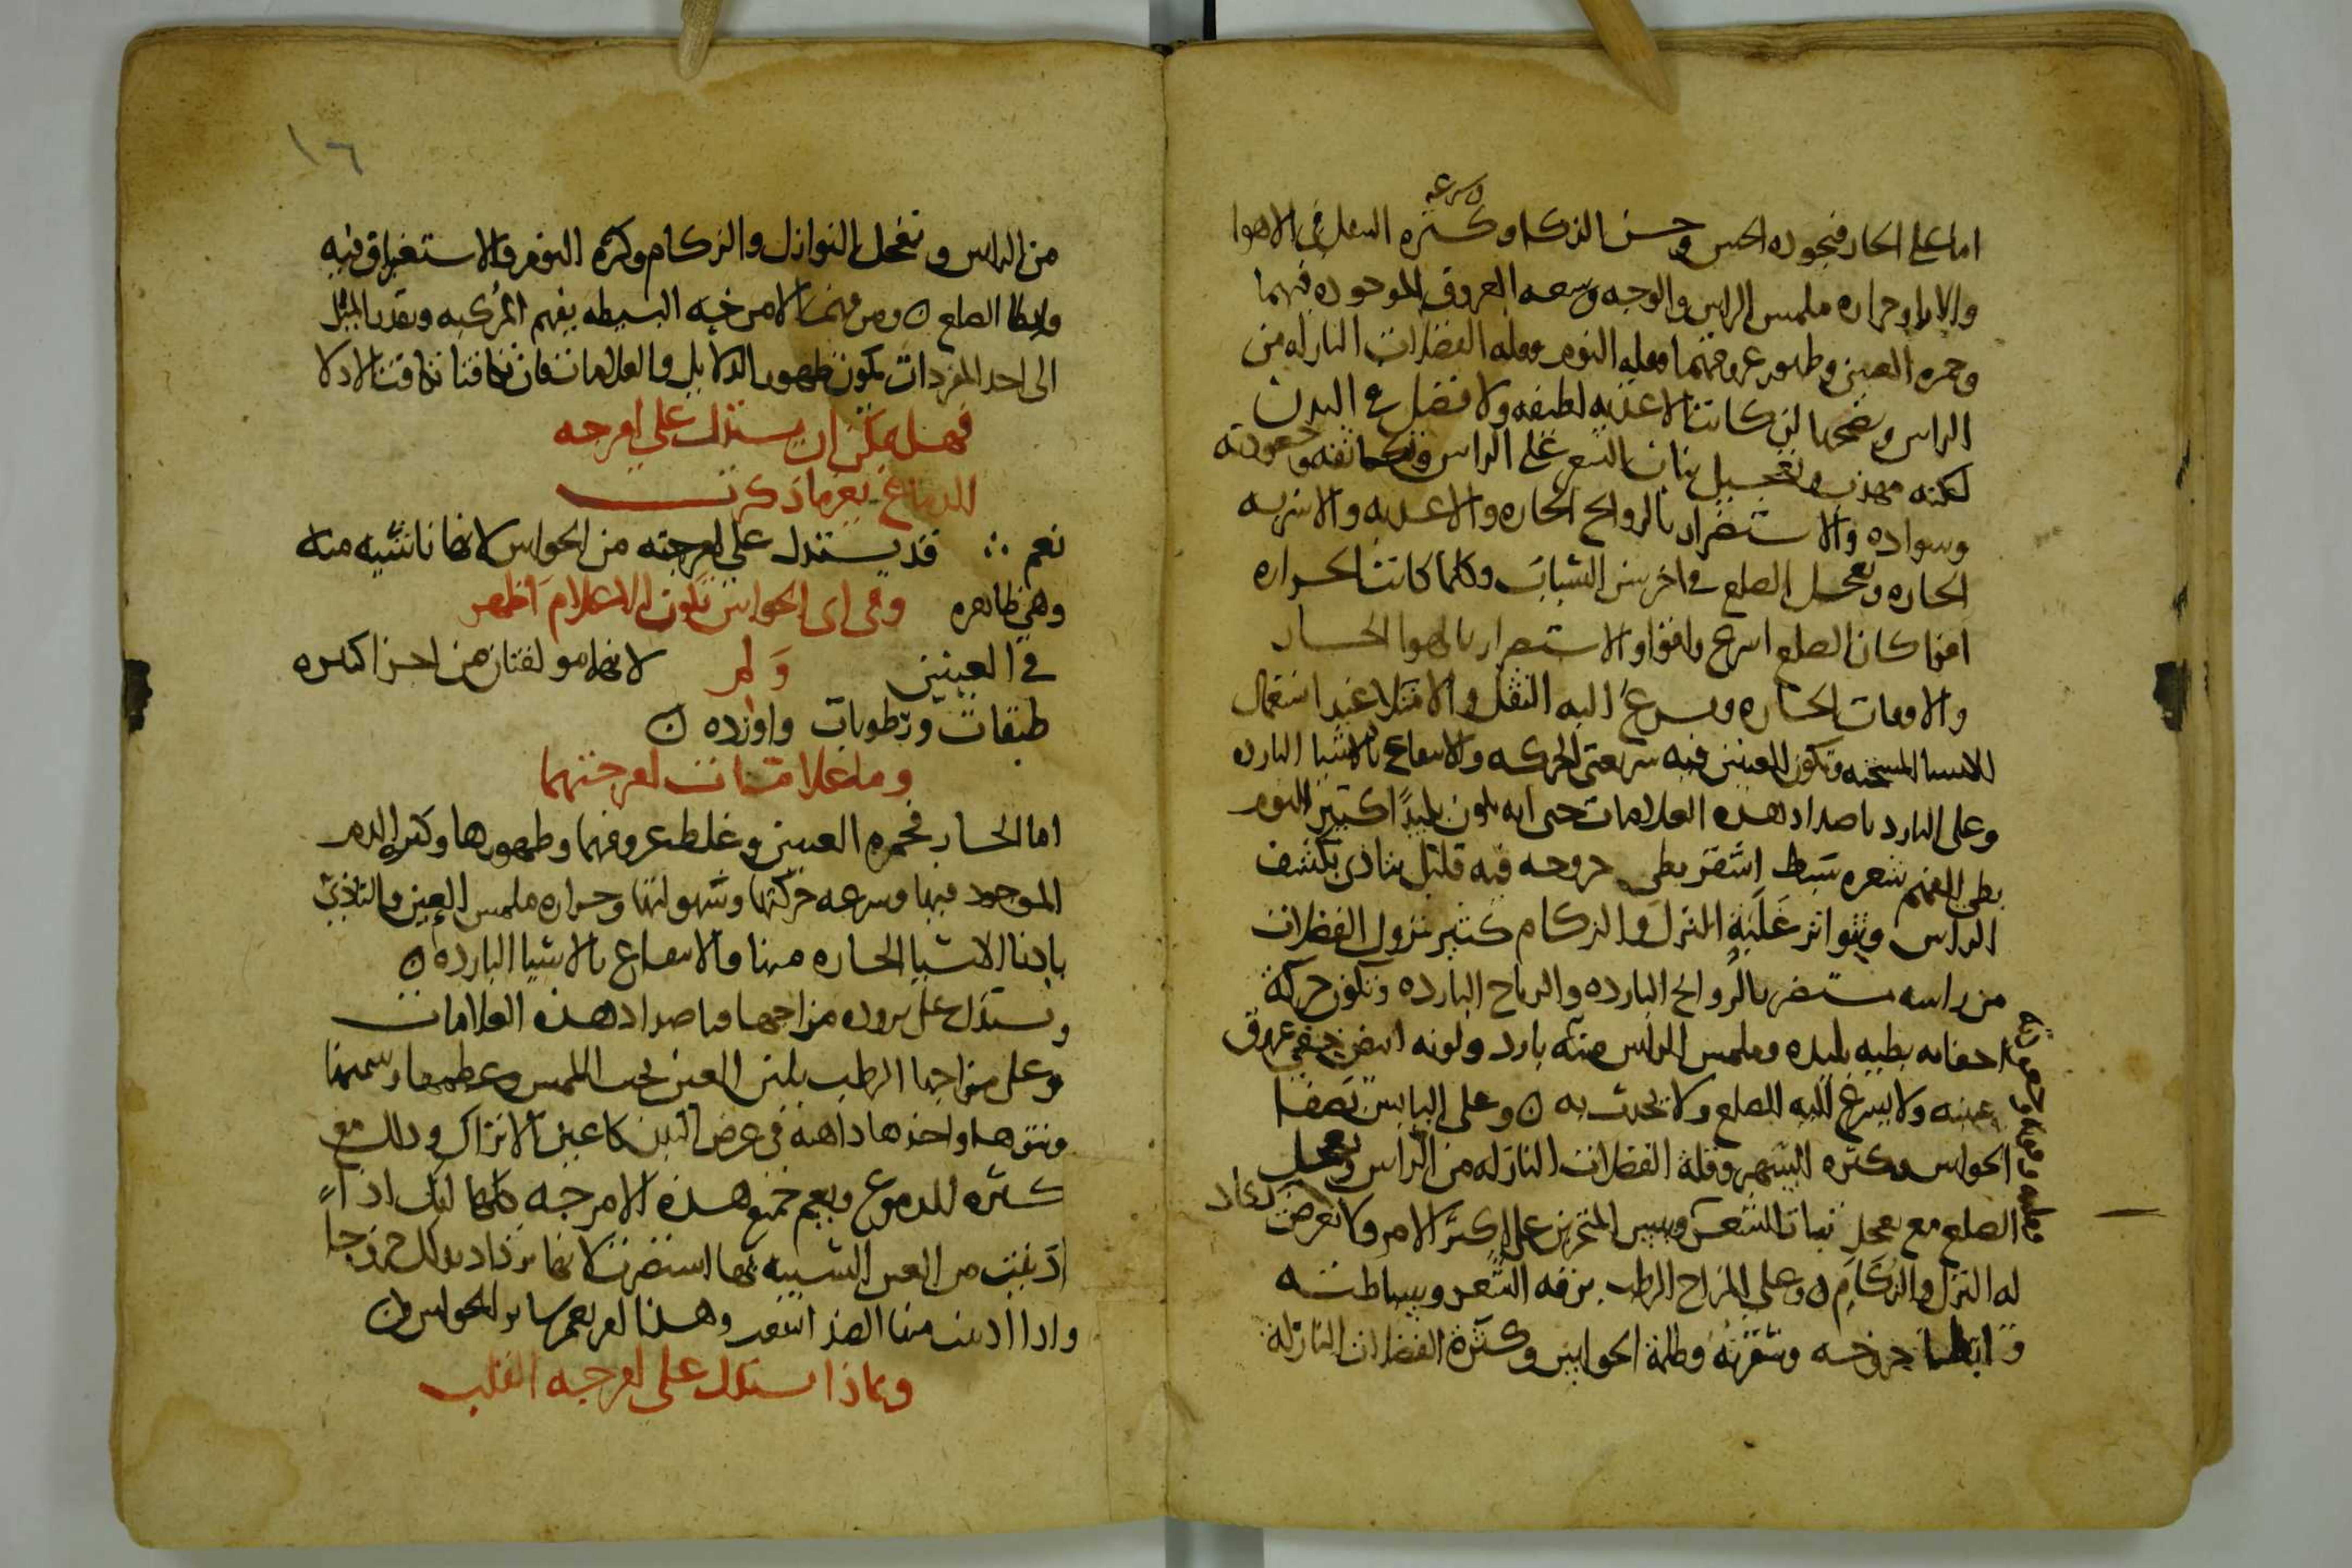 وسرعه
اما على الحار فبجوده الحس وحسن الذكا وكثره التنقل في الاهوا
والارا وحراره ملمس الراس والوجه وسعه العروق الموجوده فيهما
وحمره العينين وظهور عروقهما وقله النوم وقله الفضلات النازله من
الراس ونضجها لن كانت الاغذيه لطيفه ولا فضل في البدن
لكنه مهذب وتعجيل نبات الشعر على الراس وتكاثفه وجعودته
وسواده والاستضرار بالروايح الحاره والاغذيه والاشربه
الحاره وتعجل الصلع في اخر سن الشباب وكلما كانت الحراره
اقوا كان الصلع اسرع واقوا والاستضرار بالهوا الحار
والاوقات الحاره ويسرع اليه الثقل والامتلا عند استعمال
الاشيا المسخنه وتكون العينين فيه سريعتي الحركه والانتفاع بالاشيا البارده
وعلى البارد باضداد هذه العلامات حتى انه يكون بليدًا كثير النوم
بطي الفهم شعره سبط اشقر بطي خروجه فيه قليل يتاذى بكشف
الراس ويتواتر عليه النزل والزكام كثير نزول الفضلات
من راسه مستضر بالروايح البارده والرياح البارده وتكون حركة
اجفانه بطيه بليده وملمس الراس منه بارد ولونه ابيض خفي عروق
عينه ولا يسرع اليه الصلع ولا يحدث به ن وعلى اليابس بصفا
الحواس وكثره السهر وقلة الفضلات النازله من الراس وتعجل
الصلع مع تعجل نبات الشعر ويبس المنخرين على اكثر الامر ولا تعرض
له النزل والزكام ن وعلى المزاج الرطب برقه الشعر وبساطته
وابطا خروجه وشقرته وظلمة الحواس وكثرة الفضلات النازلة
١٦
من الراس وتعجل النوازل والزكام وكثره النوم والاستغراق فيه
وابطا الصلع ن ومن فهمت الامزجه البسيطه يفهم المركبه وبقدر الميل
الى احد المفردات يكون ظهور الدلايل والعلامات فان تكافتا تكافت الادلا
فهل يمكن ان يستدل على امزجه
الدماغ بغير ما ذكرت
نعم ∴ قد يستدل على امزجته من الحواس لانها ناشيه منه
وهي ظاهره وفي اى الحواس تكون الاعلام اظهر
في العينين ولم لانهما مولفتان من اجزا كثيره
طبقات ورطوبات واورده ن
وما علامات امزجتهما
اما الحار فحمره العينين وغلظ عروقهما وظهورها وكثره الدم
الموجود فيها وسرعه حركتها وسهولتها وحراره ملمس العين والتاذي
بادنا الاشيا الحاره منها والانتفاع بالاشيا البارده ن
وتستدل على بروده مزاجها باضداد هذه العلامات
وعلى مزاجها الرطب بلين العين تحت اللمس وعظمها وسمنها
ونتوها واخذها ذاهبه في عرض البدن كاعين الاتراك وذلك مع
كثره الدموع ويعم جميع هذه الامزجه كلها انك اذا
ادنيت من العين الشبيه بها استضرت لانها تزداد بذلك خروجا
واذا ادنيت منها الضد انتفعت وهذا امر يعم ساير الحواس ن
وبماذا تستدل على امزجه القلب